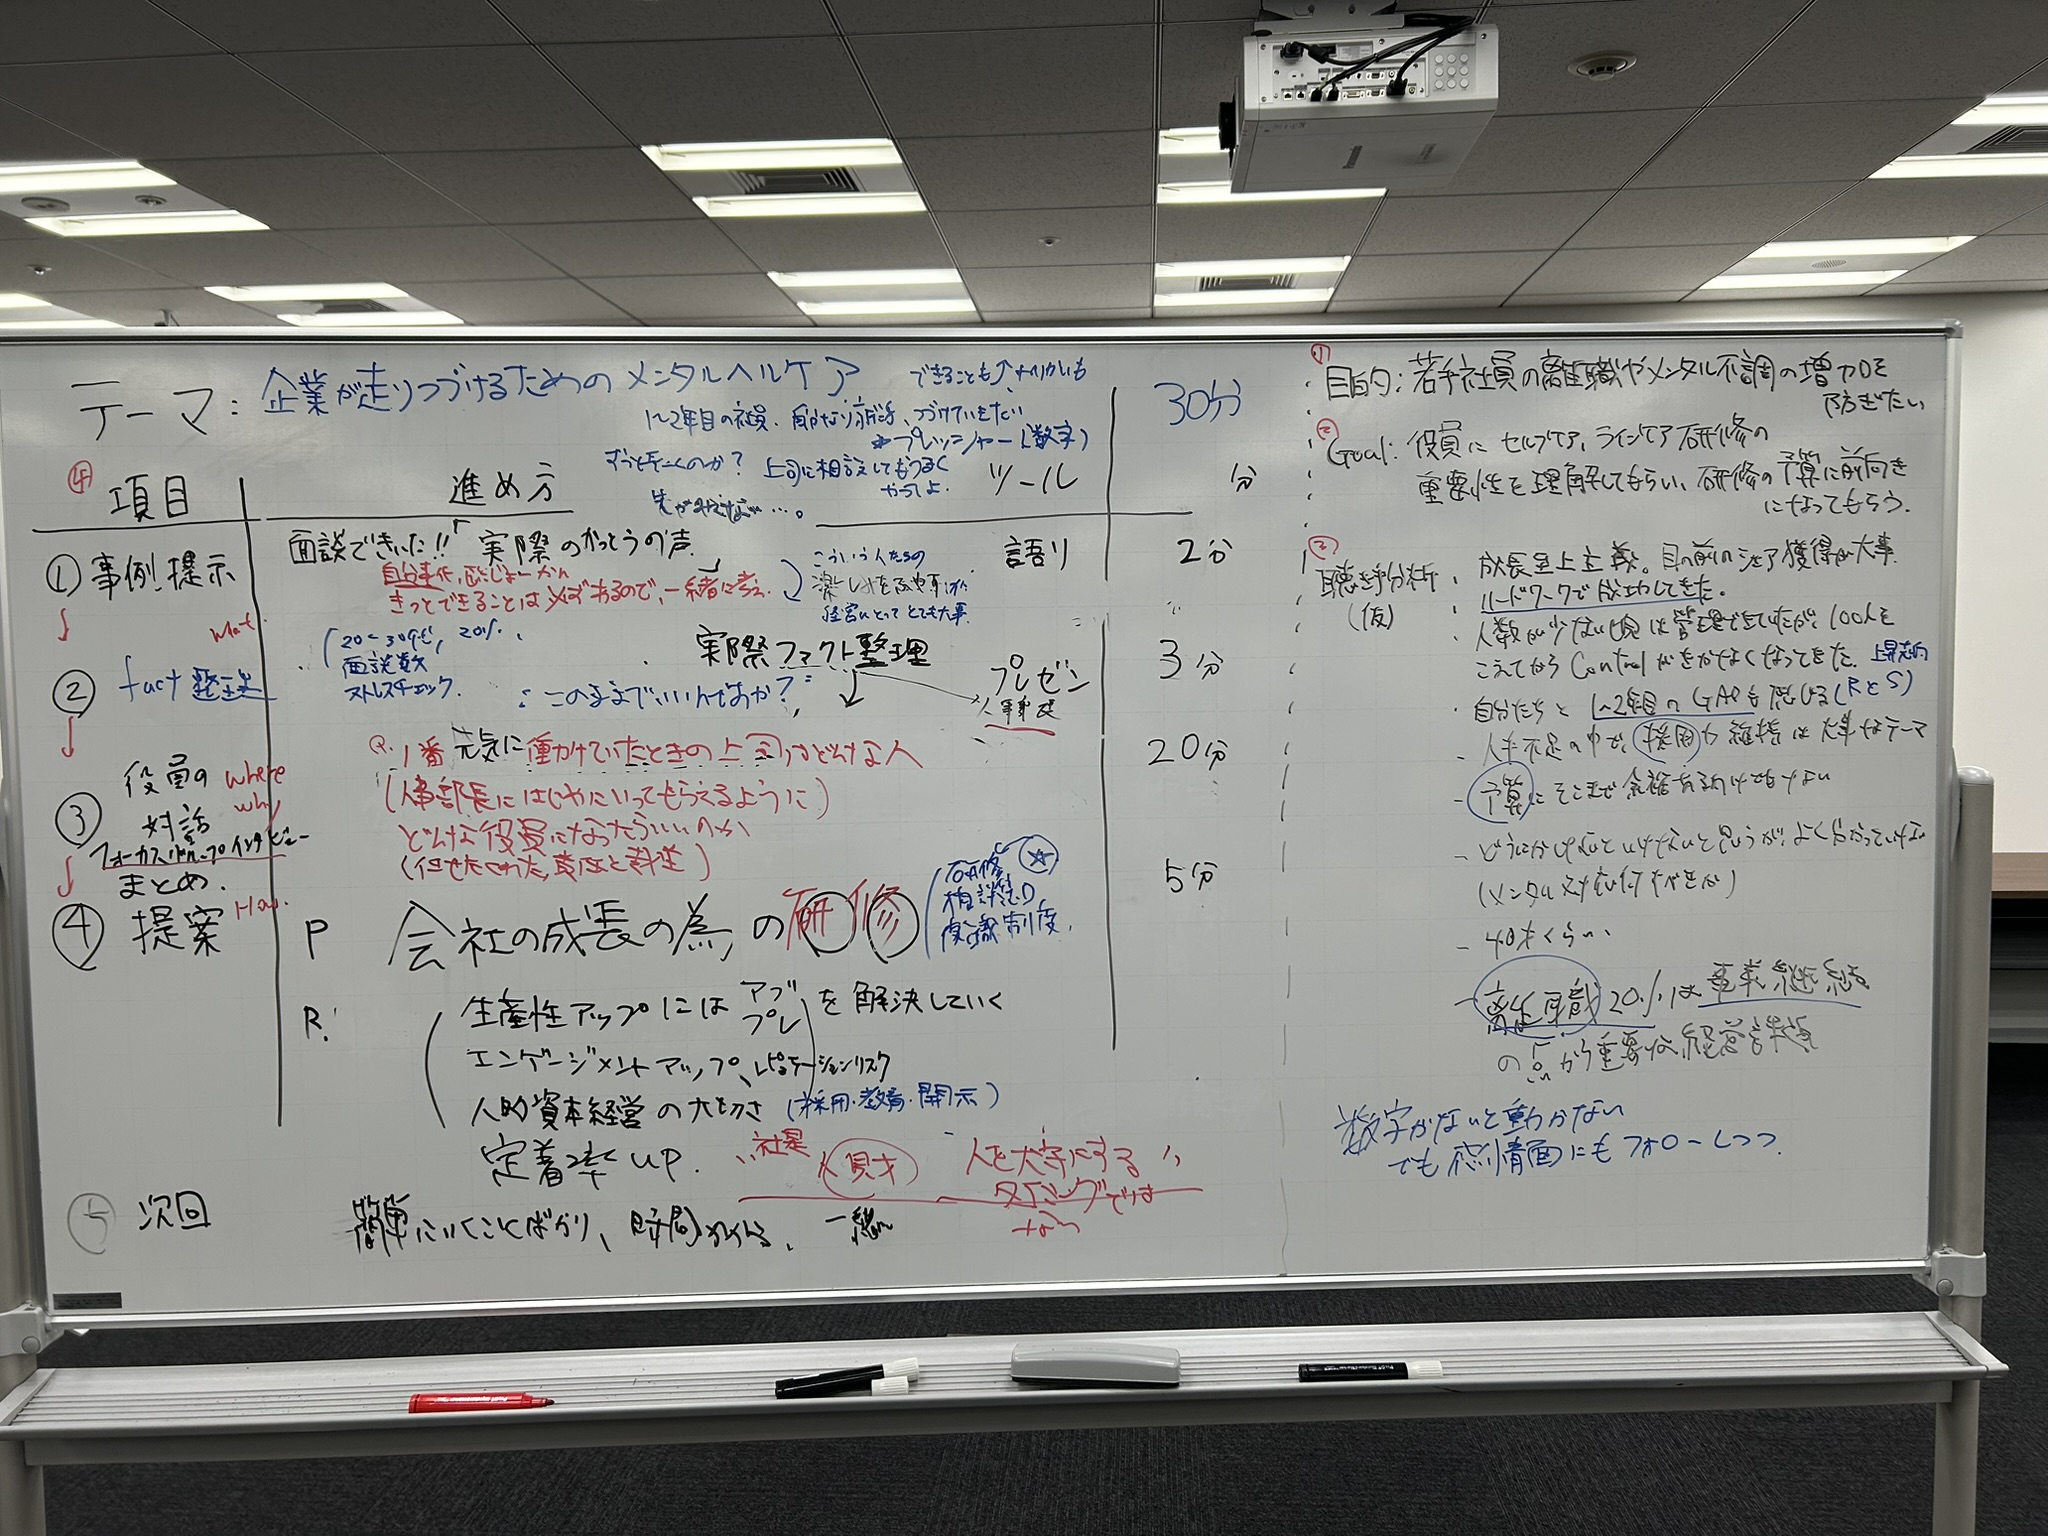 テーマ: 企業が走りつづけるためのメンタルヘルケア
できることも↑やりがいも
1~2年目の社員. づけていきたい
プレッシャー(数字)
ずっと行くのか? 上司に相談してもうまく
やってよ.
先がみえない…。
30分
④ 項目
進め方
ツール
分
① 事例提示
面談できいた!!「実際のかっとうの声」
自分事化
きっとできることは必ずあるので、一緒に考え
こういう人たちの
経営にとってとても大事.
語り
2分
What
② fact 整理
20~30代, 20%,
面談数
ストレスチェック.
実際ファクト整理
: このままでいいんですか?
プレゼン
人事
3分
③ 役員の対話
where
why
フォーカスグループインタビュー
まとめ.
Q. 1番元気に働かけていたときの上司はどんな人
(人事部長にはじめにいってもらえるように)
どんな役員になったらいいのか
20分
④ 提案 How.
P 会社の成長の為の研修
研修 ☆
相談窓口,
復職制度,
5分
R. 生産性アップにはアブプレを解決していく
エンゲージメントアップ、レピュテーションリスク
人的資本経営の大切さ (採用・教育・開示)
定着率up.
社是 人財 人を大事にする
タイミングでは
ない
⑤ 次回
簡単にいくことばかり、時間かかる、一緒に
① 目的: 若手社員の離職やメンタル不調の増加を
防ぎたい
② Goal: 役員にセルフケア、ラインケア研修の
重要性を理解してもらい、研修の予算に前向き
になってもらう.
③ 聴き手分析
(仮)
・成長至上主義。目の前のシェア獲得が大事.
・ハードワークで成功してきた.
・人数が少ない頃は管理できていたが、100人を
こえてから Control がきかなくなってきた. 上昇志向
・自分たちと 1~2年目の GAP も感じる (RとS)
- 人手不足の中で、採用力維持は大事なテーマ
- 予算にそこまで余裕があるわけではない
- どうにかしないといけないと思うが、よく分かっていない
(メンタル対応何すべきか)
- 40才くらい、
- 離職20%は事業継続
の点から重要な経営課題
数字がないと動かない
でも感情面にもフォローしつつ